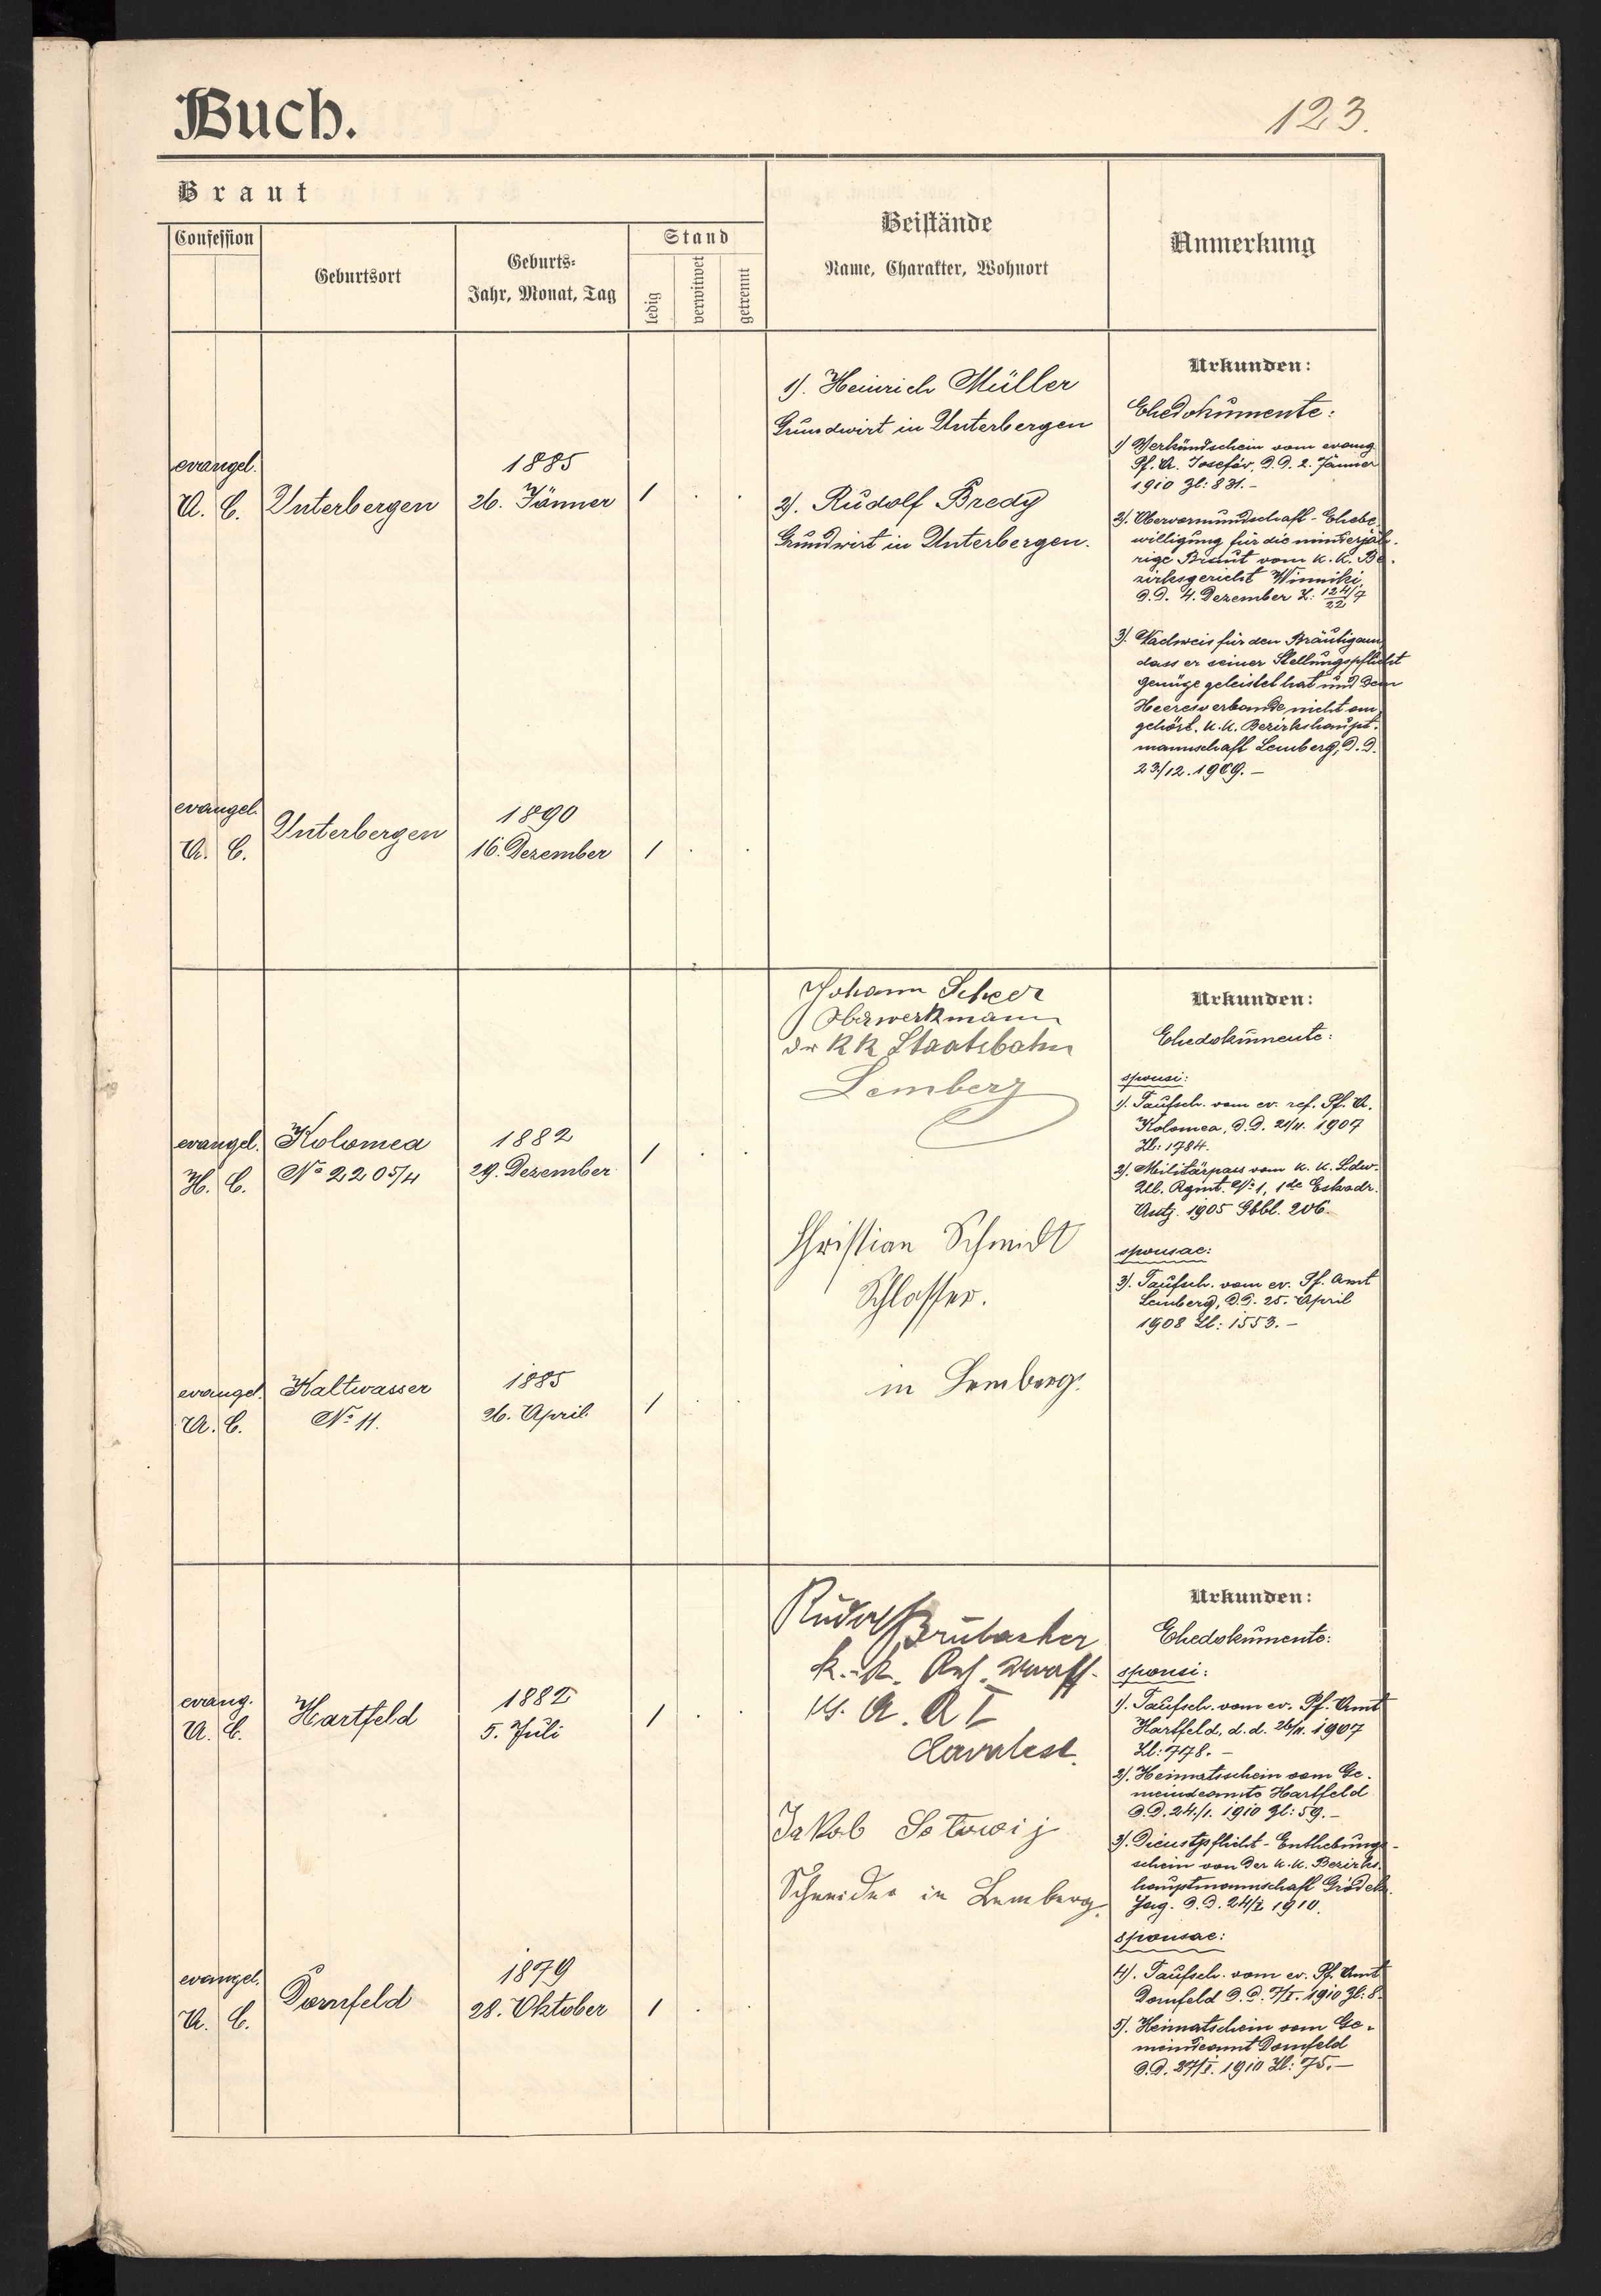 Buch.
123.
Braut
Confession
Geburtsort
Geburts-
Jahr, Monat, Tag
Stand
ledig
verwitwet
getrennt
Beistände
Name, Charakter, Wohnort
Anmerkung
evangel.
A. C.
Unterbergen
1885
26. Jänner
1 . .
1). Heinrich Müller
Grundwirt in Unterbergen
2). Rudolf Bredy
Grundwirt in Unterbergen.
Urkunden:
Ehedokumente:
1) Verkündschein vom evang.
Pf. A. Josefów, d.d. 2. Jänner
1910 Zl: 831.-
2). Obervormundschaft-Ehebe
willigung für die minderjäh-
rige Braut vom k. k. Be-
zirksgericht Winniki,
d.d. 4. Dezember Z: 124/7
22
3). Nachweis für den Bräutigam,
dass er seiner Stellungspflicht
genüge geleistet hat und dem
Heeresverbande nicht an-
gehört. k. k. Bezirkshaupt-
mannschaft Lemberg, d.d.
23/12. 1909.-
evangel.
A. C.
Unterbergen
1890
16. Dezember
1 . .
evangel.
H. C.
Kolomea
No 2205/4
1882
29. Dezember
1 . .
Johann Scheer
Oberwerkmann
der KK Staatsbahn
Lemberg
Christian Schmidt
Schlosser.
in Lemberg.
Urkunden:
Ehedokumente:
sponsi:
1). Taufsch. vom ev. ref. Pf. A.
Kolomea, d.d. 21/11. 1907
Zl: 1784.
2). Militärpass vom k. k. Ldw.
Uhl. Rgmt. No 1, 1te Eskadr.
1905 Gbbl. 206.
sponsae:
3). Taufsch. vom ev. Pf. Amt
Lemberg, d.d. 25. April
1908 Zl: 1553.-
evangel.
A. C.
Kaltwasser
No 11.
1885
26. April
1 . .
evang.
A. C.
Hartfeld
1882
5. Juli
1 . .
Rudolf Brubacher
k. k.
Jakob
Schneider in Lemberg.
Urkunden:
Ehedokumente:
sponsi:
1). Taufsch. vom ev. Pf. Amt
Hartfeld, d. d. 26/11. 1907
Zl: 778.-
2). Heimatsschein vom Ge-
meindeamte Hartfeld
d.d. 24./1. 1910 Zl: 59.-
3). Dienstpflicht-Enthebungs-
schein von der k. k. Bezirks-
hauptmannschaft Gródek
Jag. d.d. 24/I 1910.
sponsae:
4). Taufsch. vom ev. Pf. Amt
Dornfeld d.d. 7/I. 1910 Zl: 8.
5). Heimatschein vom Ge-
meindeamt Dornfeld
d.d. 27/I. 1910 Zl: 75.-
evangel.
A. C.
Dornfeld
1879
28. Oktober
1 . .